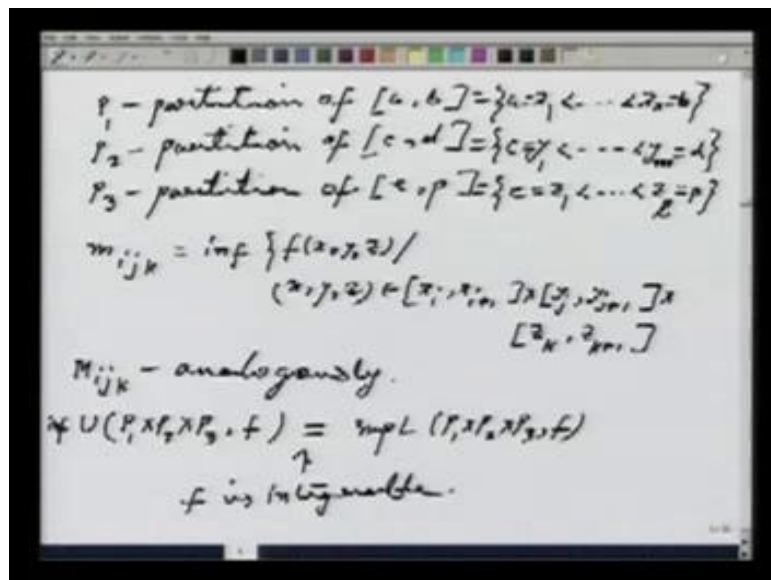 P₁ - partition of [a, b] = {a = x₁ < ---- < xₙ = b}
P₂ - partition of [c, d] = {c = y₁ < --- < yₘ = d}
P₃ - partition of [e, p] = {e = z₁ < --- < z_l = p}
m_ijk = inf { f(x, y, z) /
(x, y, z) ∈ [xᵢ, xᵢ₊₁] x [yⱼ, yⱼ₊₁] x
[z_k, z_k+1]
M_ijk - analogously.
inf U (P₁ x P₂ x P₃, f) = sup L (P₁ x P₂ x P₃, f)
↑
f is integrable.